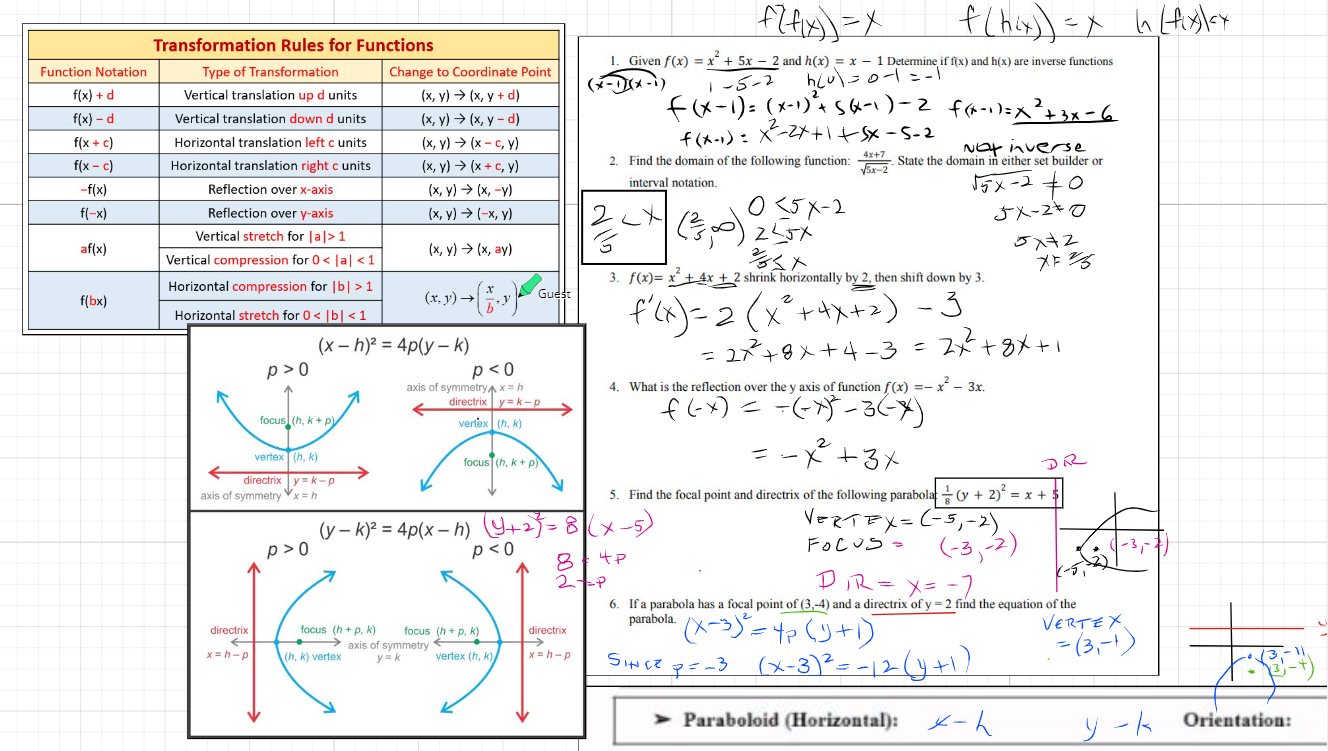 f(f(x)) = x f(h(x)) = x h(f(x)) = x
Transformation Rules for Functions
Function Notation Type of Transformation Change to Coordinate Point
f(x) + d Vertical translation up d units (x, y) → (x, y + d)
f(x) − d Vertical translation down d units (x, y) → (x, y − d)
f(x + c) Horizontal translation left c units (x, y) → (x − c, y)
f(x − c) Horizontal translation right c units (x, y) → (x + c, y)
−f(x) Reflection over x-axis (x, y) → (x, −y)
f(−x) Reflection over y-axis (x, y) → (−x, y)
af(x) Vertical stretch for |a|> 1 (x, y) → (x, ay)
Vertical compression for 0 < |a| < 1
f(bx) Horizontal compression for |b| > 1 (x, y) → (x/b, y)
Horizontal stretch for 0 < |b| < 1
Guest
(x – h)² = 4p(y – k)
p > 0 p < 0
axis of symmetry x = h
directrix y = k – p
focus (h, k + p)
vertex (h, k)
vertex (h, k)
focus (h, k + p)
directrix y = k – p
axis of symmetry x = h
(y – k)² = 4p(x – h) (y+2)² = 8 (x–5)
p > 0 p < 0
8 = 4p
2 = p
directrix focus (h + p, k) focus (h + p, k) directrix
axis of symmetry
x = h – p (h, k) vertex y = k vertex (h, k) x = h – p
1. Given f(x) = x² + 5x − 2 and h(x) = x − 1 Determine if f(x) and h(x) are inverse functions
(x-1)(x-1) 1-5-2 h(0) = 0-1 = -1
f(x-1) = (x-1)² + 5(x-1) - 2 f(x-1) = x² + 3x - 6
f(x-1) = x² - 2x + 1 + 5x - 5 - 2
Not inverse
2. Find the domain of the following function: 4x+7/√5x−2. State the domain in either set builder or
interval notation.
√5x-2 ≠ 0
5x-2 ≠ 0
5x ≠ 2
x ≠ 2/5
2/5 < x (2/5, ∞) 0 < 5x-2
2 ≤ 5x
2/5 ≤ x
3. f(x)= x² + 4x + 2 shrink horizontally by 2, then shift down by 3.
f'(x) = 2 (x² + 4x + 2) - 3
= 2x² + 8x + 4 - 3 = 2x² + 8x + 1
4. What is the reflection over the y axis of function f(x) =− x² − 3x.
f(-x) = -(-x)² - 3(-x)
= -x² + 3x
DR
5. Find the focal point and directrix of the following parabola: 1/8 (y + 2)² = x + 5
VERTEX = (-5, -2)
FOCUS = (-3, -2)
DIR = x = -7
(-3, -2)
(-5, -2)
6. If a parabola has a focal point of (3,-4) and a directrix of y = 2 find the equation of the
parabola.
(x-3)² = 4p (y+1)
VERTEX
= (3, -1)
SINCE p = -3 (x-3)² = -12 (y+1)
(3, -1)
(3, -4)
➤ Paraboloid (Horizontal): x-h y-k Orientation: